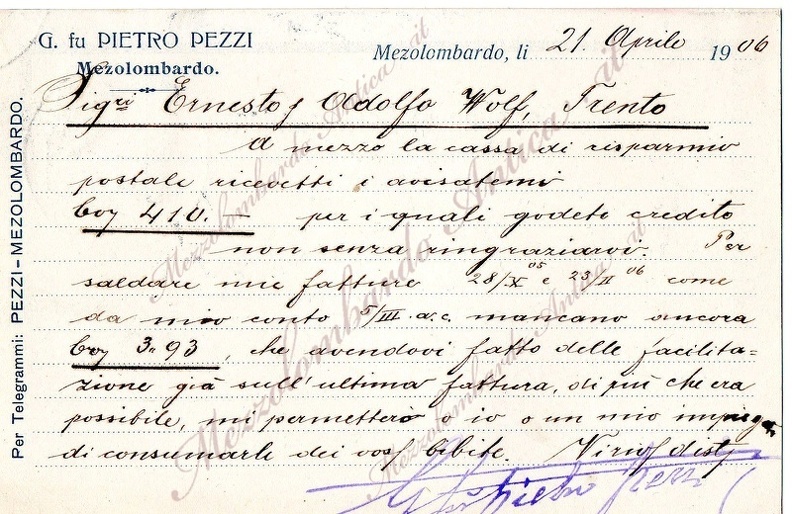 G. fu PIETRO PEZZI
Mezolombardo.
Mezolombardo, li 21. Aprile 1906
Sigri Ernesto & Adolfo Wolf, Trento
A mezzo la cassa di risparmio
postale ricevetti i avisatemi
Cor 410.— per i quali godete credito
non senza ringraziarvi. Per
saldare mie fatture 28/X 05 e 23/II 06 come
da mio conto 5/III a.c. mancano ancora
Cor 3.93, che avendovi fatto delle facilita=
zione già sull'ultima fattura, di più che era
possibile, mi permetterò o io o un mio
di consumarle dei vos/ bibite.
Per Telegrammi: PEZZI - MEZOLOMBARDO.
Mezzolombardo Antica
Mezzolombardo Antica
Mezzolombardo Antica